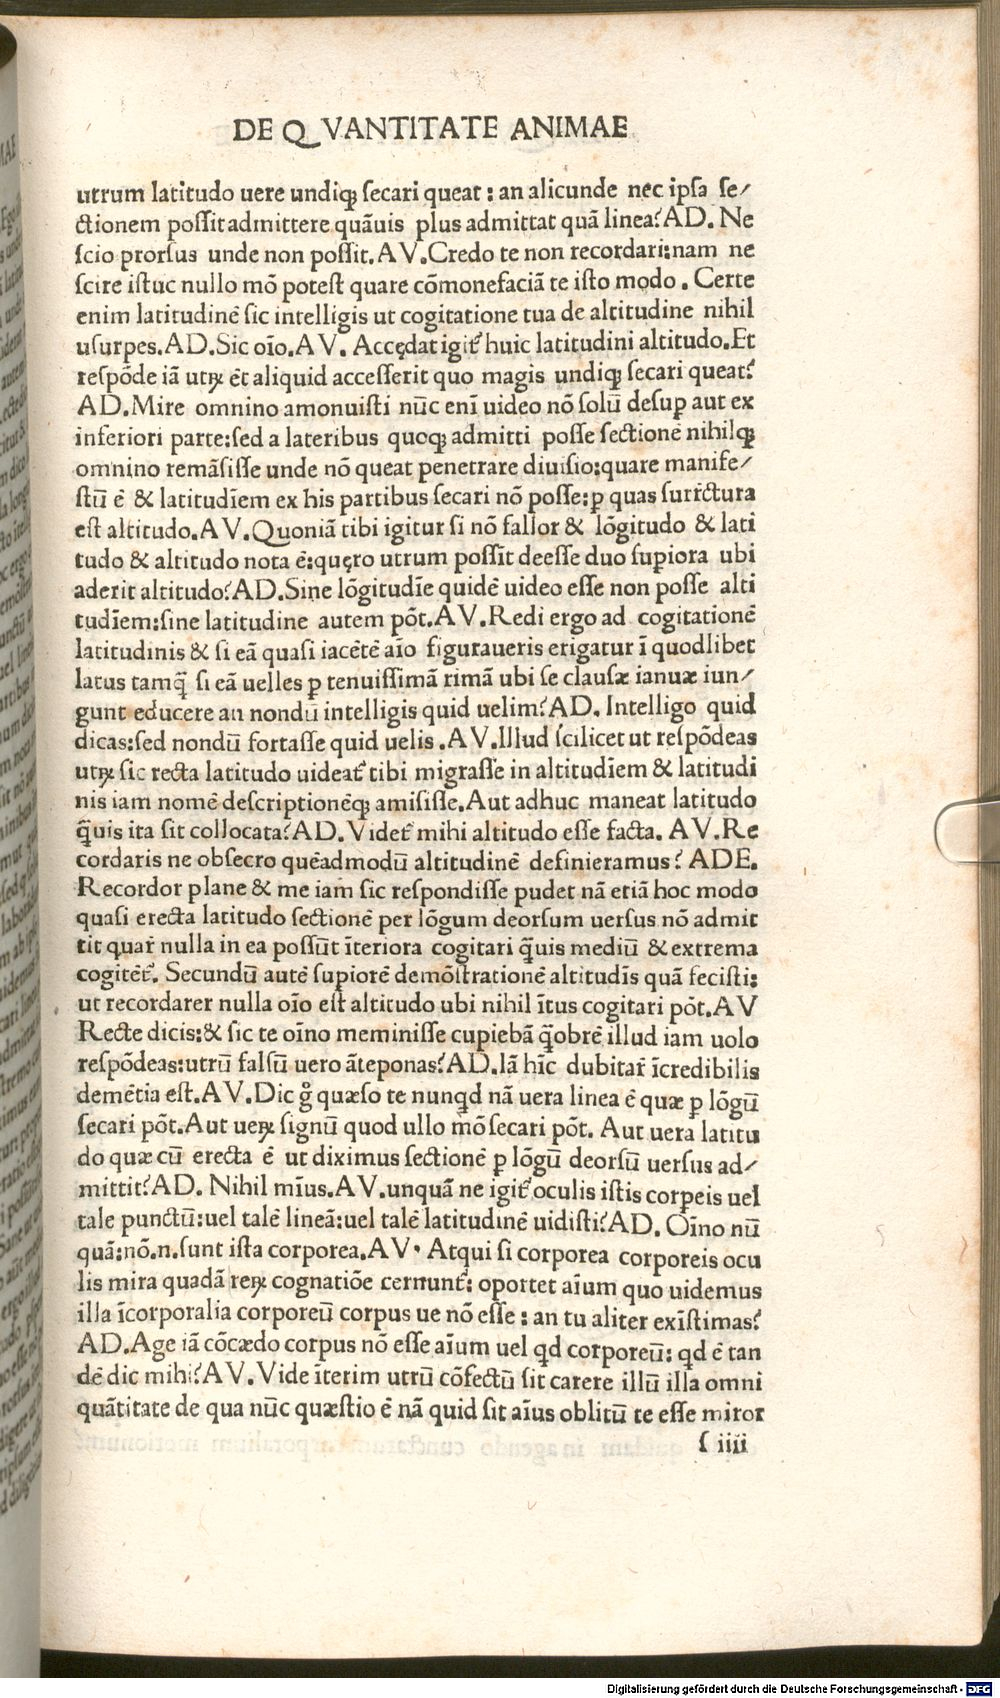 DE QVANTITATE ANIMAE
utrum latitudo uere undiqꝫ secari queat : an alicunde nec ipsa se/
ctionem possit admittere quãuis plus admittat quã linea? AD. Ne
scio prorsus unde non possit. AV. Credo te non recordari: nam ne
scire istuc nullo mõ potest quare cõmonefaciã te isto modo . Certe
enim latitudinẽ sic intelligis ut cogitatione tua de altitudine nihil
usurpes. AD. Sic oĩo. AV. Accędat igit᷑ huic latitudini altitudo. Et
respõde iã utꝝ ẽt aliquid accesserit quo magis undiqꝫ secari queat?
AD. Mire omnino amonuisti nũc enĩ uideo nõ solũ desuꝑ aut ex
inferiori parte: sed a lateribus quoqꝫ admitti posse sectionẽ nihilqꝫ
omnino remãsisse unde nõ queat penetrare diuisio: quare manife/
stũ ẽ & latitudĩem ex his partibus secari nõ posse: ꝑ quas surr̃ctura
est altitudo. AV. Quoniã tibi igitur si nõ fallor & lõgitudo & lati
tudo & altitudo nota ẽ: quęro utrum possit deesse duo suꝑiora ubi
aderit altitudo? AD. Sine lõgitudĩe quidẽ uideo esse non posse alti
tudĩem: sine latitudine autem põt. AV. Redi ergo ad cogitationẽ
latitudinis & si eã quasi iacẽtẽ aĩo figuraueris erigatur ĩ quodlibet
latus tamq̃ si eã uelles ꝑ tenuissimã rimã ubi se clausæ ianuæ iun/
gunt educere an nondũ intelligis quid uelim? AD. Intelligo quid
dicas: sed nondũ fortasse quid uelis . AV. Illud scilicet ut respõdeas
utꝝ sic recta latitudo uideat᷑ tibi migrasse in altitudĩem & latitudi
nis iam nomẽ descriptionẽqꝫ amisisse. Aut adhuc maneat latitudo
q̃uis ita sit collocata? AD. Videt᷑ mihi altitudo esse facta. AV. Re
cordaris ne obsecro quẽadmodũ altitudinẽ definieramus? ADE.
Recordor plane & me iam sic respondisse pudet nã etiã hoc modo
quasi erecta latitudo sectionẽ per lõgum deorsum uersus nõ admit
tit quar̃ nulla in ea possũt ĩteriora cogitari q̃uis mediũ & extrema
cogitẽt᷑. Secundũ autẽ suꝑiorẽ demõstrationẽ altitudĩs quã fecisti:
ut recordarer nulla oĩo est altitudo ubi nihil ĩtus cogitari põt. AV
Recte dicis: & sic te oĩno meminisse cupiebã q̃obrẽ illud iam uolo
respõdeas: utrũ falsũ uero ãteponas? AD. Iã hĩc dubitar̃ ĩcredibilis
demẽtia est. AV. Dic g̊ quæso te nunqd nã uera linea ẽ quæ ꝑ lõgũ
secari põt. Aut ueꝝ signũ quod ullo mõ secari põt. Aut uera latitu
do quæ cũ erecta ẽ ut diximus sectionẽ ꝑ lõgũ deorsũ uersus ad/
mittit? AD. Nihil mĩus. AV. unquã ne igit᷑ oculis istis corꝑeis uel
tale punctũ: uel talẽ lineã: uel talẽ latitudinẽ uidisti? AD. Oĩno nũ
quã: nõ .n. sunt ista corporea. AV. Atqui si corporea corporeis ocu
lis mira quadã reꝝ cognatiõe cernunt᷑: oportet aĩum quo uidemus
illa ĩcorporalia corporeũ corpus ue nõ esse : an tu aliter exĩstimas?
AD. Age iã cõcædo corpus nõ esse aĩum uel qd corporeũ: qd ẽ tan
dẽ dic mihi? AV. Vide ĩterim utrũ cõfectũ sit carere illũ illa omni
quãtitate de qua nũc quæstio ẽ nã quid sit aĩus oblitũ te esse miror
ſ iiii
Digitalisierung gefördert durch die Deutsche Forschungsgemeinschaft - DFG